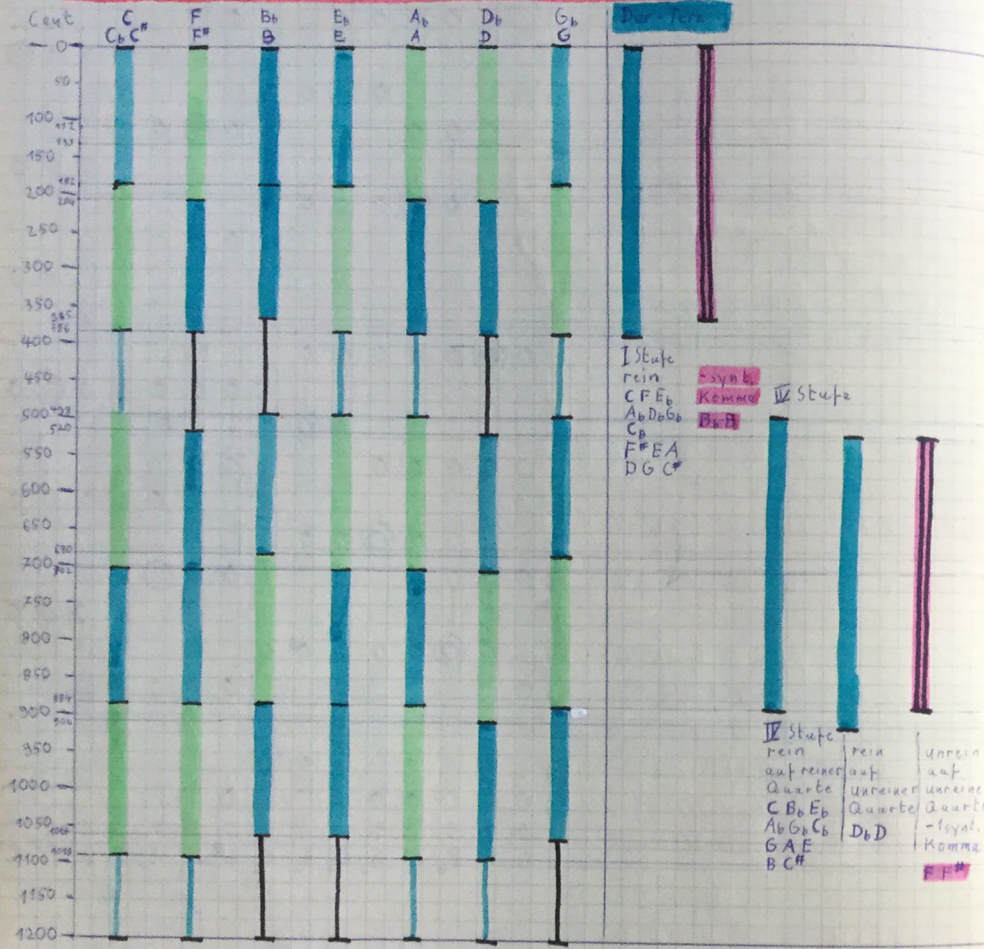 Cent C F Bb Eb Ab Db Gb
Cb C# F# B E A D G
Dur-Terz
0
50
100
112
133
150
182
200
204
250
300
350
386
400
450
498
500
520
550
600
650
680
700
702
750
800
850
884
900
906
950
1000
1050
1088
1100
1150
1200
I Stufe
rein
C F Eb
Ab Db Gb
Cb
F# E A
D G C#
-synt.
Komma
Bb B
IV Stufe
IV Stufe
rein
auf reiner
Quarte
C Bb Eb
Ab Gb Cb
G A E
B C#
rein
auf
unreiner
Quarte
Db D
unrein
auf
unreine
Quart
-1synt.
Komma
F F#